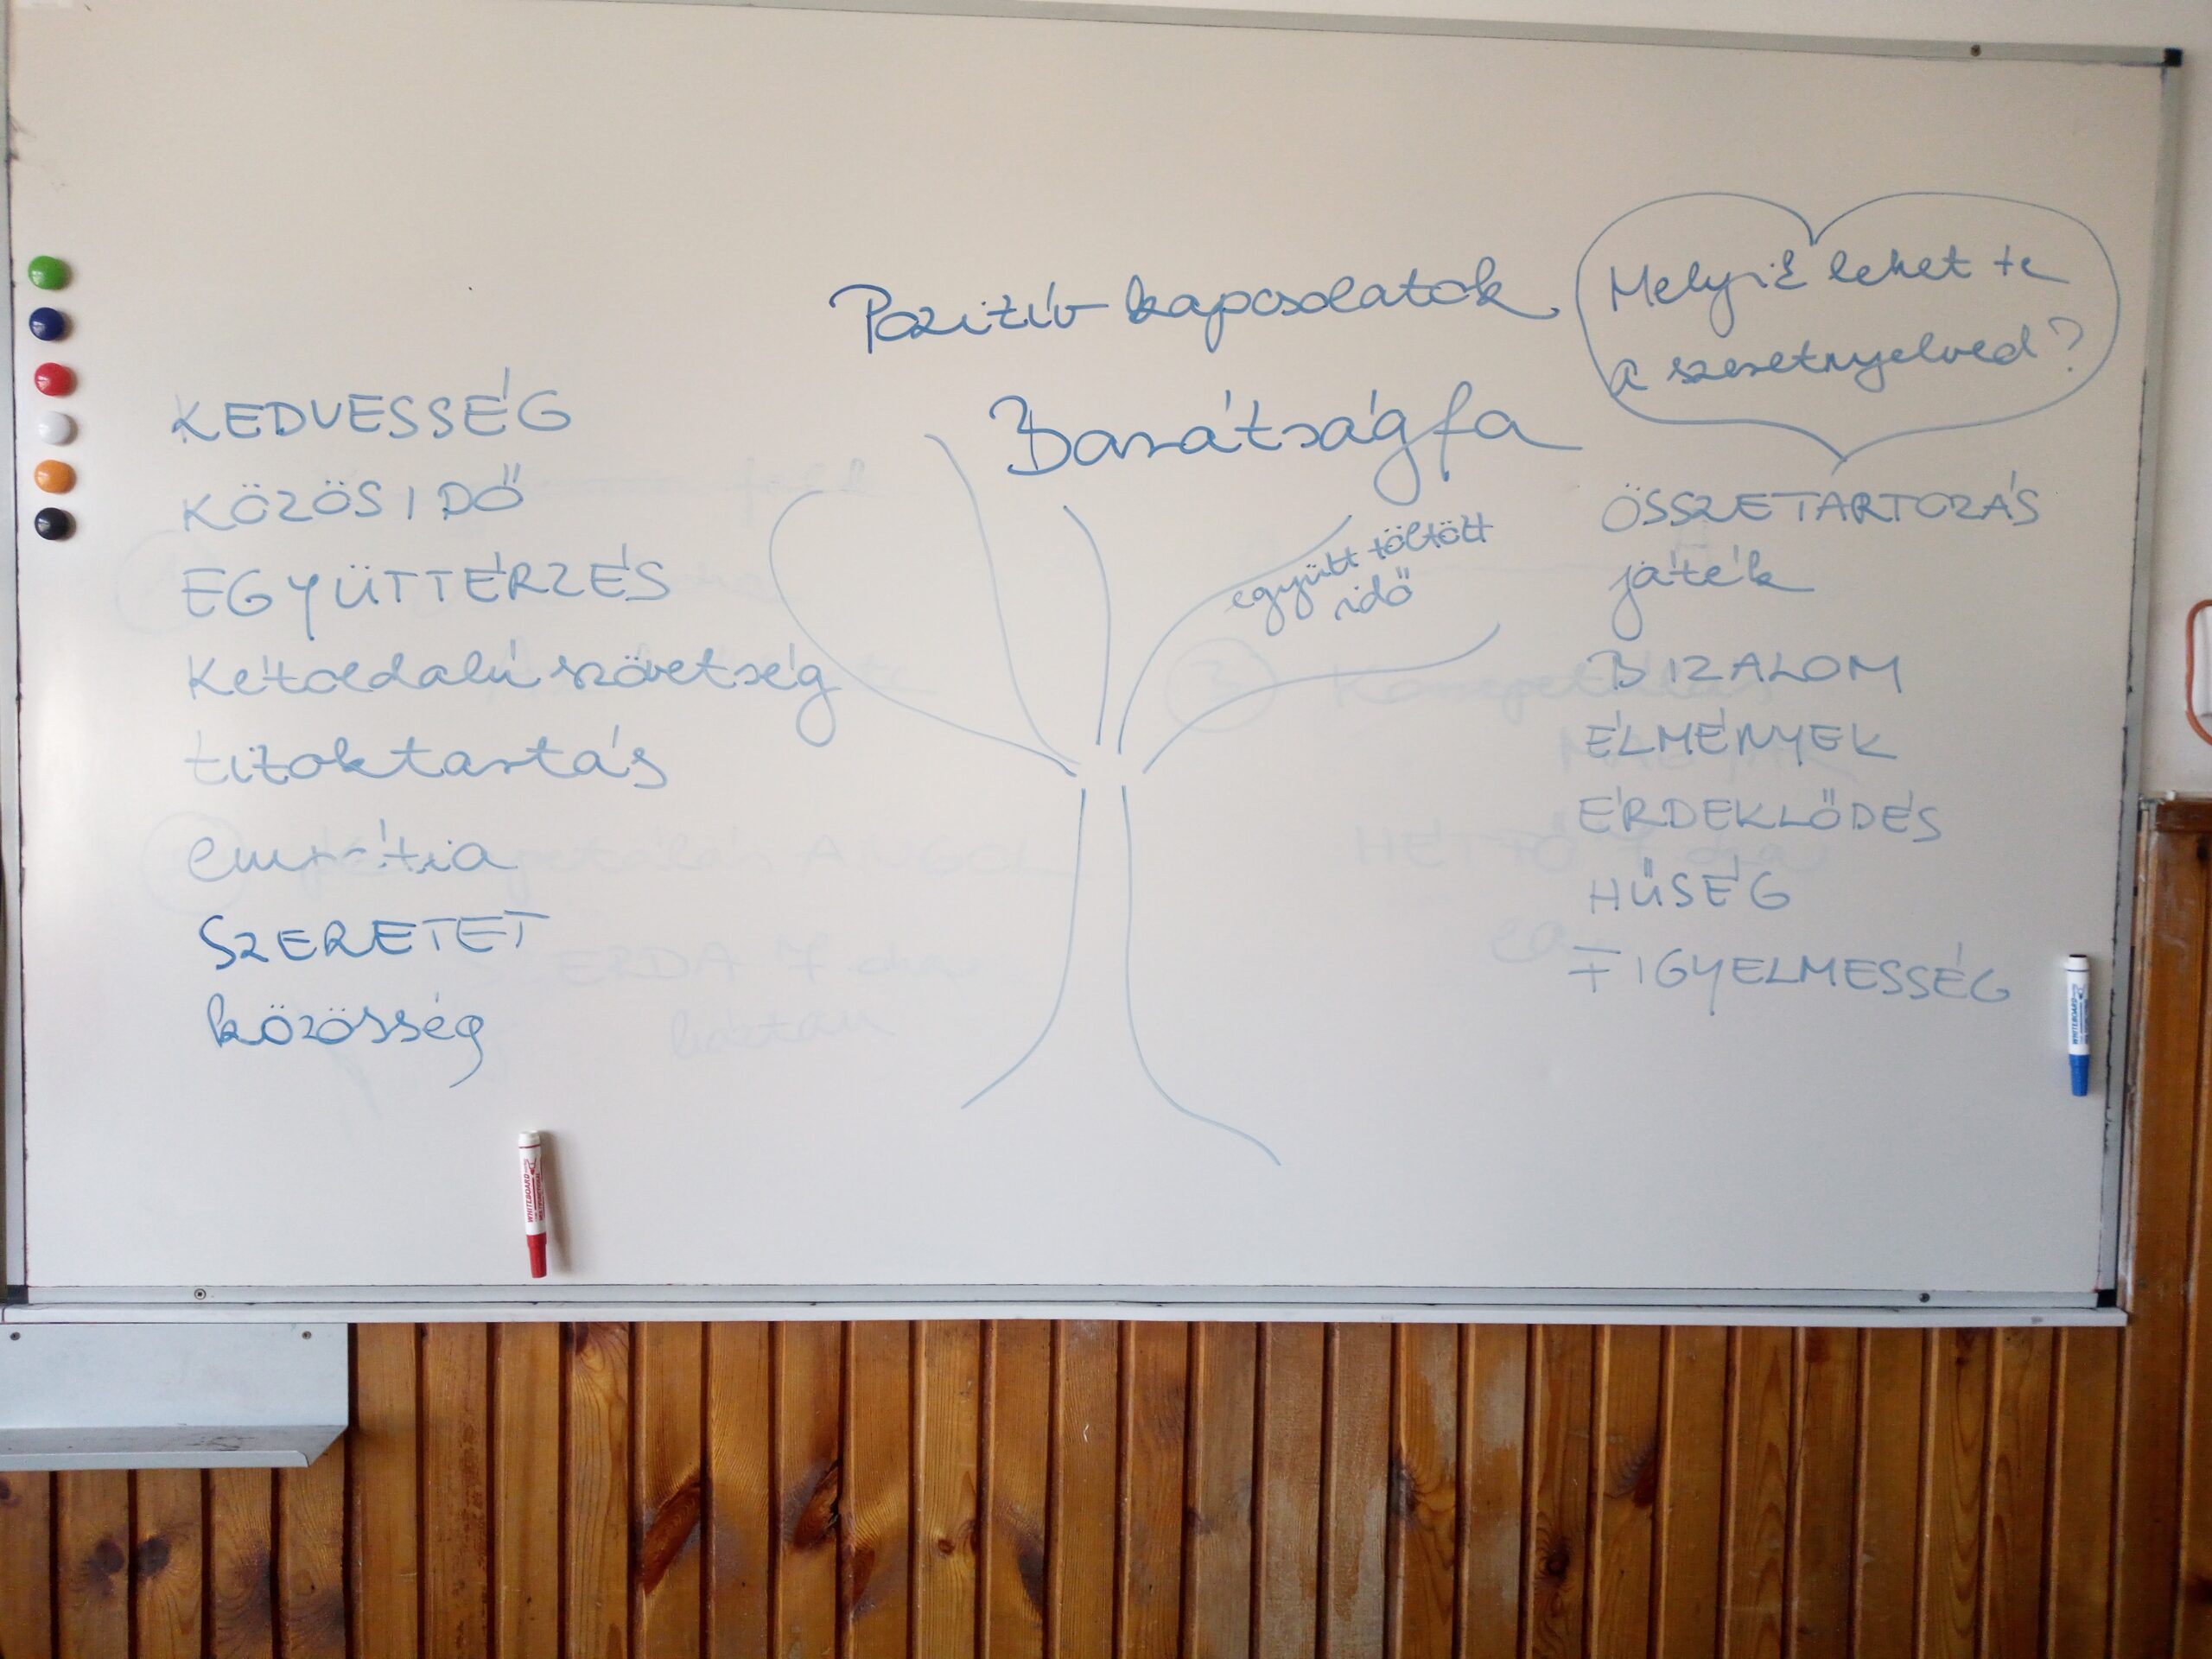 Pozitív kapcsolatok
Barátságfa
Melyik lehet te
a szeretnyelved?
KEDVESSÉG
KÖZÖS IDŐ
EGYÜTTÉRZÉS
Kétoldalú szövetség
titoktartás
empátia
SZERETET
közösség
együtt töltött
idő
ÖSSZETARTOZÁS
játék
BIZALOM
ÉLMÉNYEK
ÉRDEKLŐDÉS
HŰSÉG
FIGYELMESSÉG
WHITEBOARD
WHITEBOARD